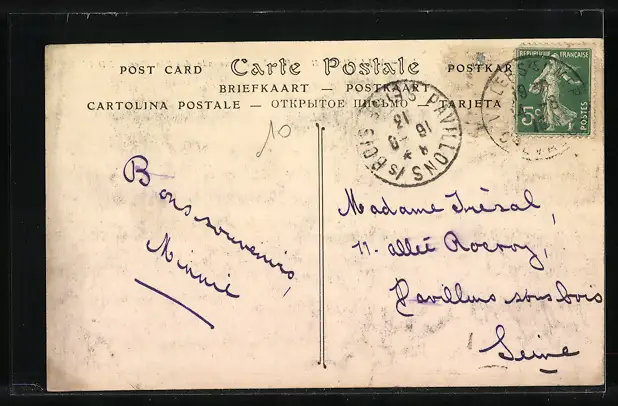 POST CARD Carte Postale POSTKAR
BRIEFKAART — POSTKAART
CARTOLINA POSTALE — ОТКРЫТОЕ ПИСЬМО TARJETA
10
LES PAVILLONS /s BOIS
16 - 9
13
RÉPUBLIQUE FRANÇAISE
5c
POSTES
Bons souvenirs,
Minnie
Madame Trésal,
11. allée Rocroy,
Pavillons sous bois
Seine